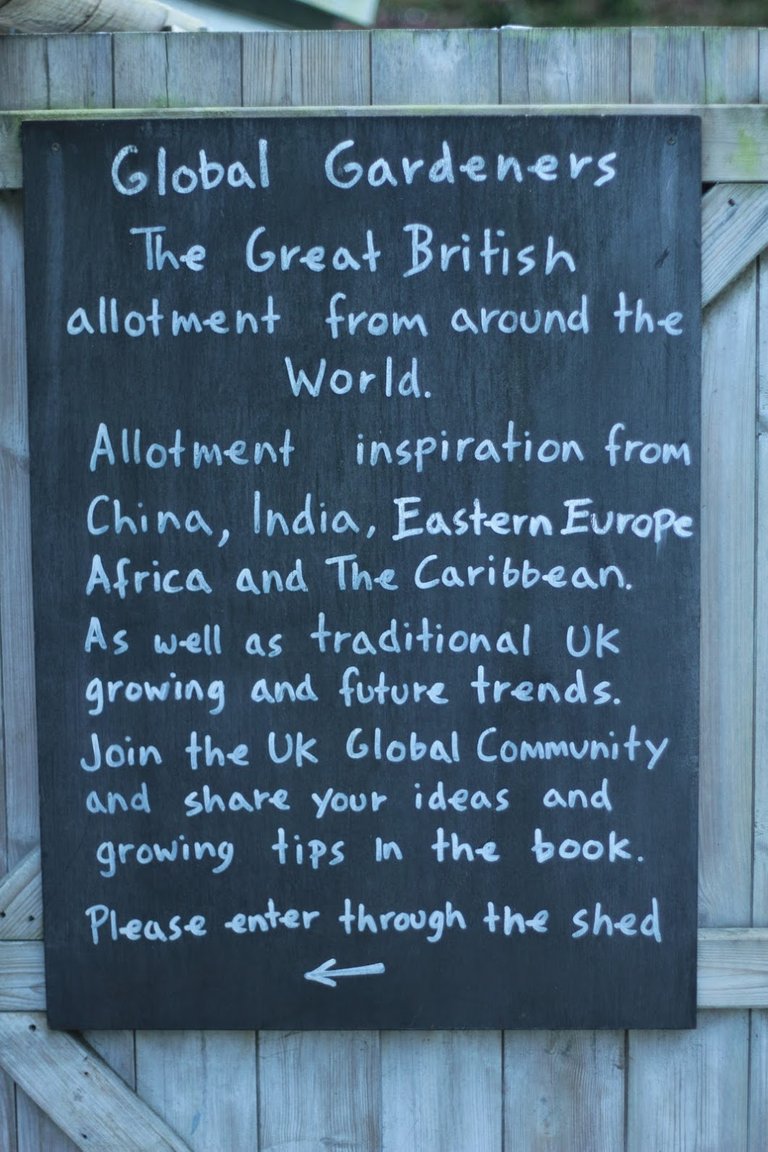 Global Gardeners
The Great British
allotment from around the
World.
Allotment inspiration from
China, India, Eastern Europe
Africa and The Caribbean.
As well as traditional UK
growing and future trends.
Join the UK Global Community
and share your ideas and
growing tips in the book.
Please enter through the shed
←